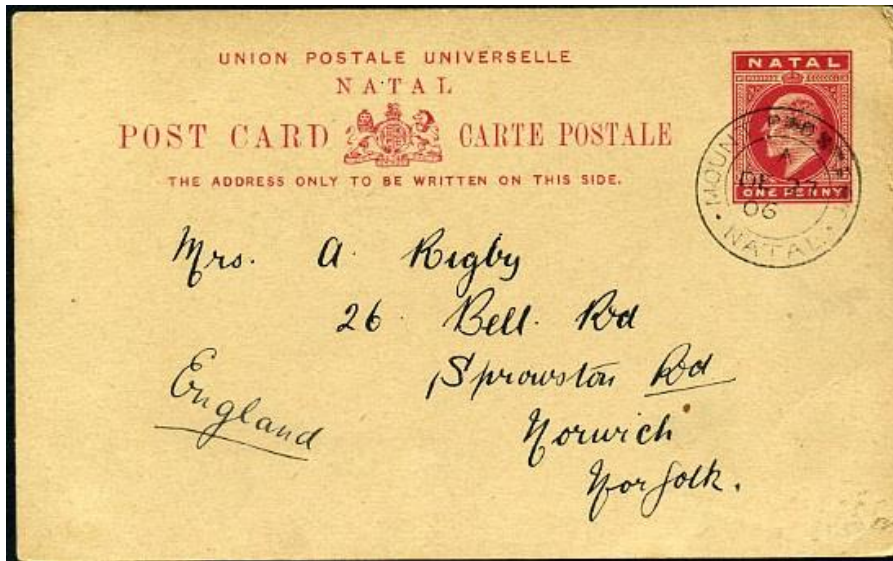 UNION POSTALE UNIVERSELLE
NATAL
POST CARD CARTE POSTALE
THE ADDRESS ONLY TO BE WRITTEN ON THIS SIDE.
NATAL
ONE PENNY
MOUNT
DE 27
06
NATAL
Mrs. A. Rigby
26 Bell Rd
Sprowston Rd
Norwich
Norfolk.
England